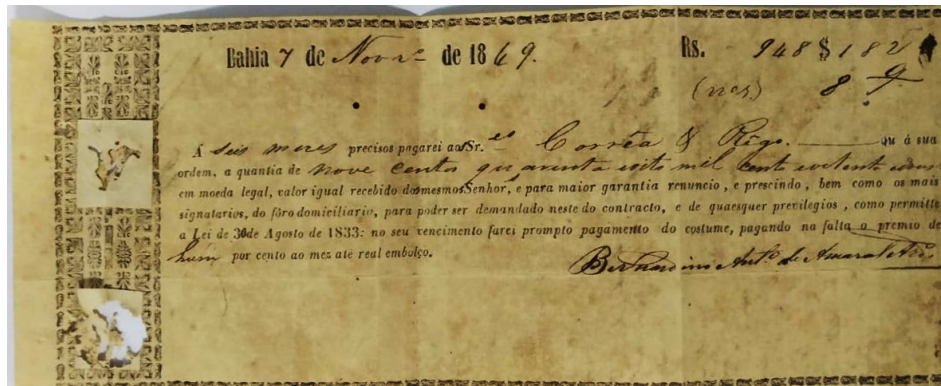 Bahia 7 de Novr.e de 1869. Rs. 948$182
(nos)
Á seis mezes precisos pagarei aos Sr.es Corrêa & Rêgo. ou á sua
ordem, a quantia de nove centos quarenta e oito mil cento e oitenta e dous
em moeda legal, valor igual recebido dos mesmos Senhor, e para maior garantia renuncio, e prescindo, bem como os mais
signatarios, do fôro domiciliario, para poder ser demandado neste do contracto, e de quaesquer previlegios, como permitte
a Lei de 30 de Agosto de 1833: no seu vencimento farei prompto pagamento do costume, pagando na falta o premio de
hum por cento ao mez até real embolço.
Bernardino Ant.o de Amaral